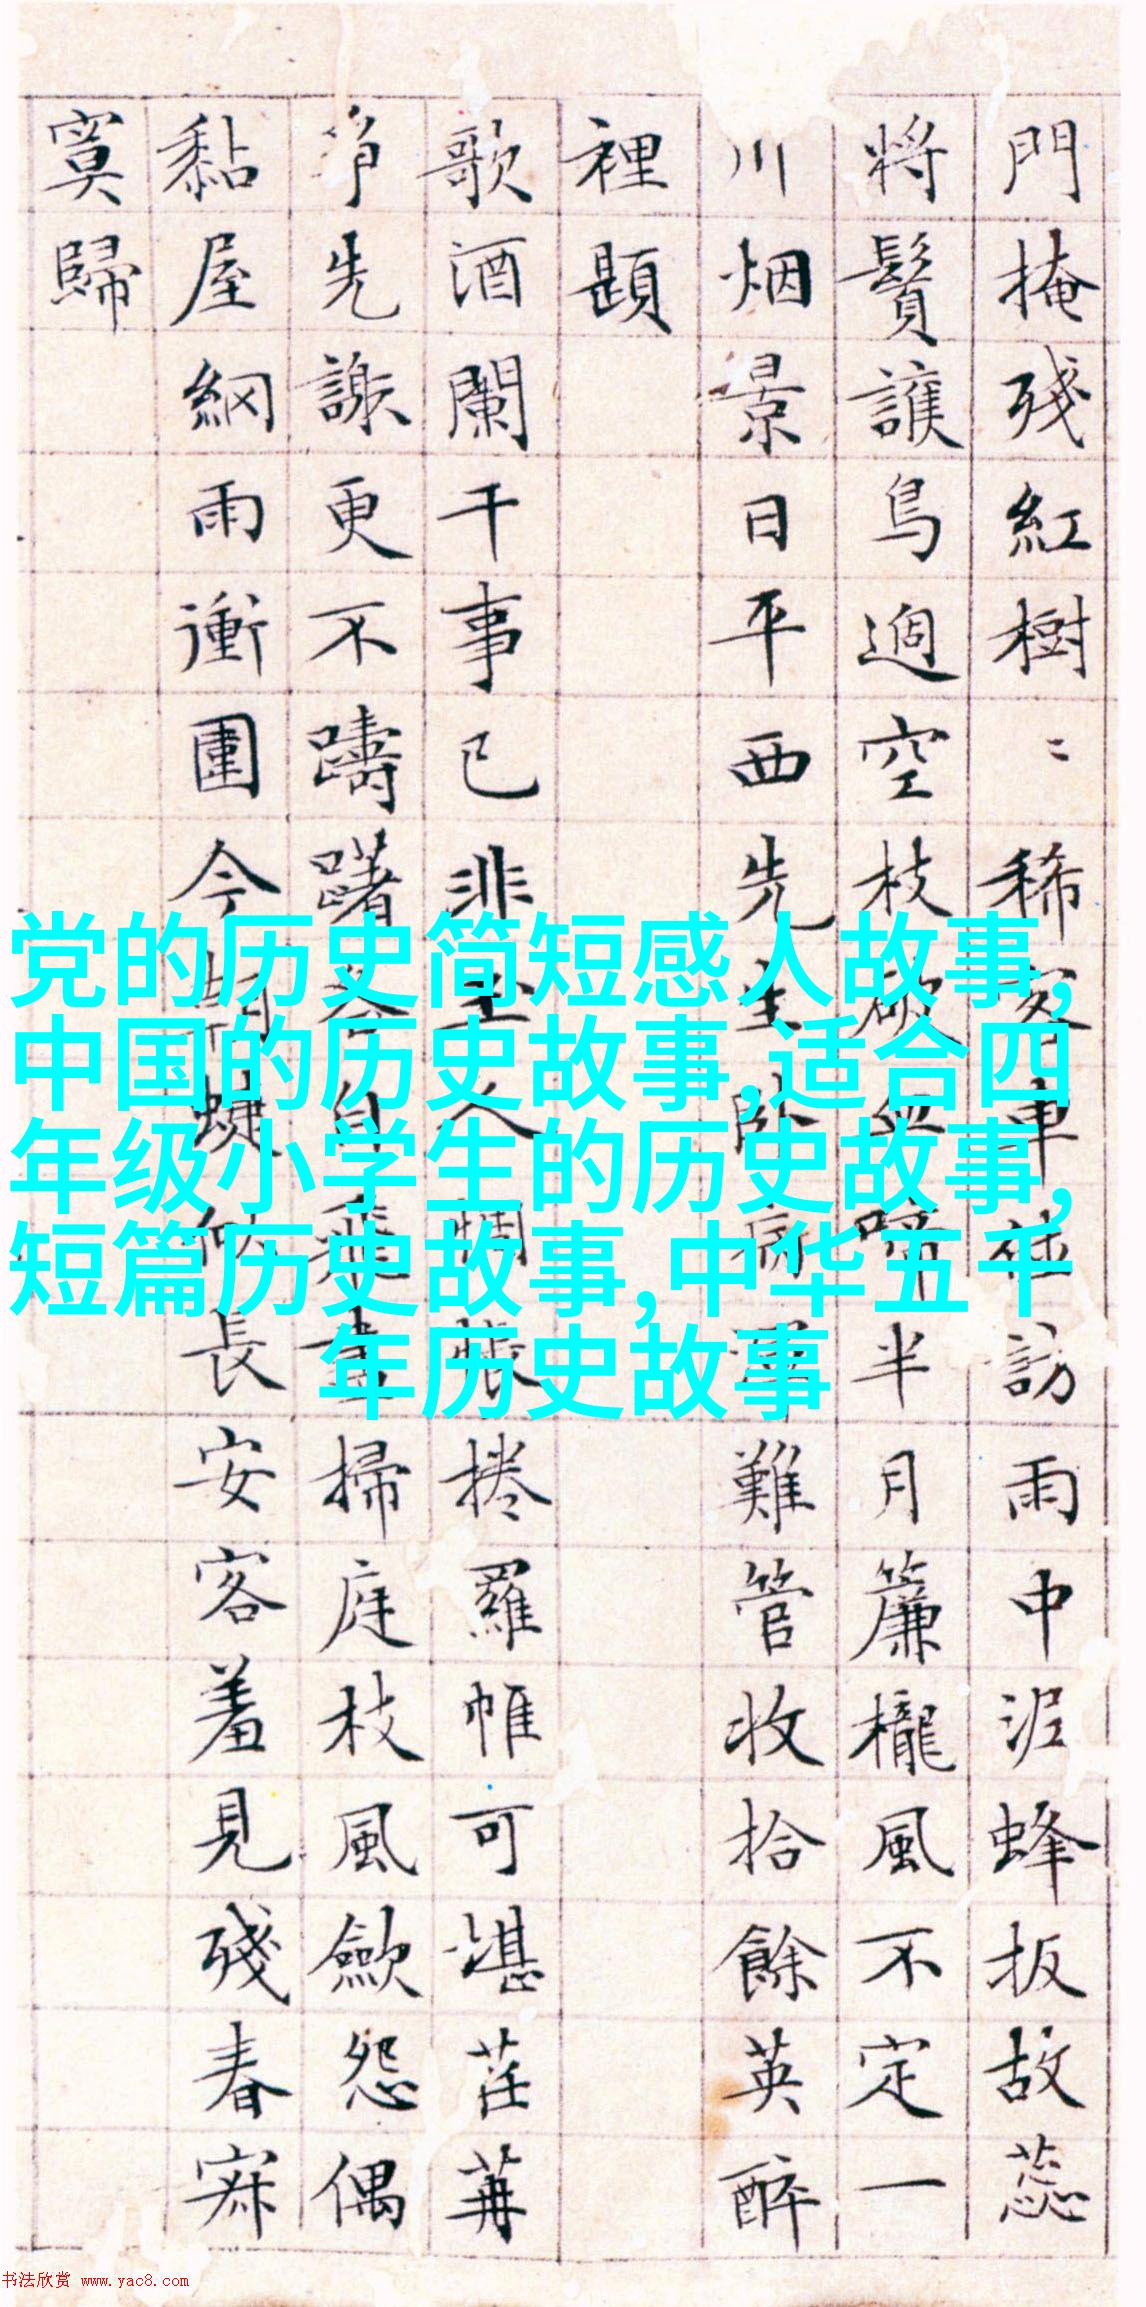 門掩殘紅樹〻稀客車枉訪雨中泥蜂扳故蕊
將鬚護鳥過空枝破血啼半月簾櫳風不定一
川烟景日平西先生卧病渾難管收拾餘英醉
裡題
歌酒闌干事已非主人惆悵捲羅帷可堪荏苒
爭先謝更不躊躇各自飛掃庭枝風歛怨偶
黏屋網雨衝圍今朝蜨似長安客羞見殘春寂
寞歸
党的历史简短感人故事,
中国的历史故事,适合四
年级小学生的历史故事,
短篇历史故事,中华五千
年历史故事
书法欣赏 www.yac8.com